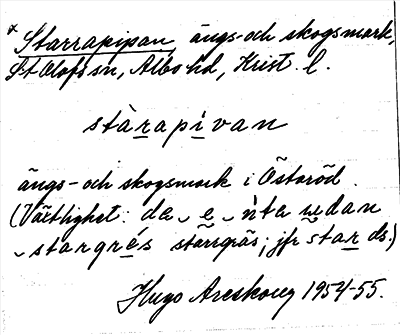 * Starrapipan, ängs- och skogsmark,
St Olofs sn, Albo hd, Krist. l.
stàrapivan
ängs- och skogsmark i Östaröd.
(Växtlighet: de ̮ e ̮ ǹta udan
 ̮ stargrés stärrgräs; jfr star ds.)
Hugo Areskoug 1954-55.